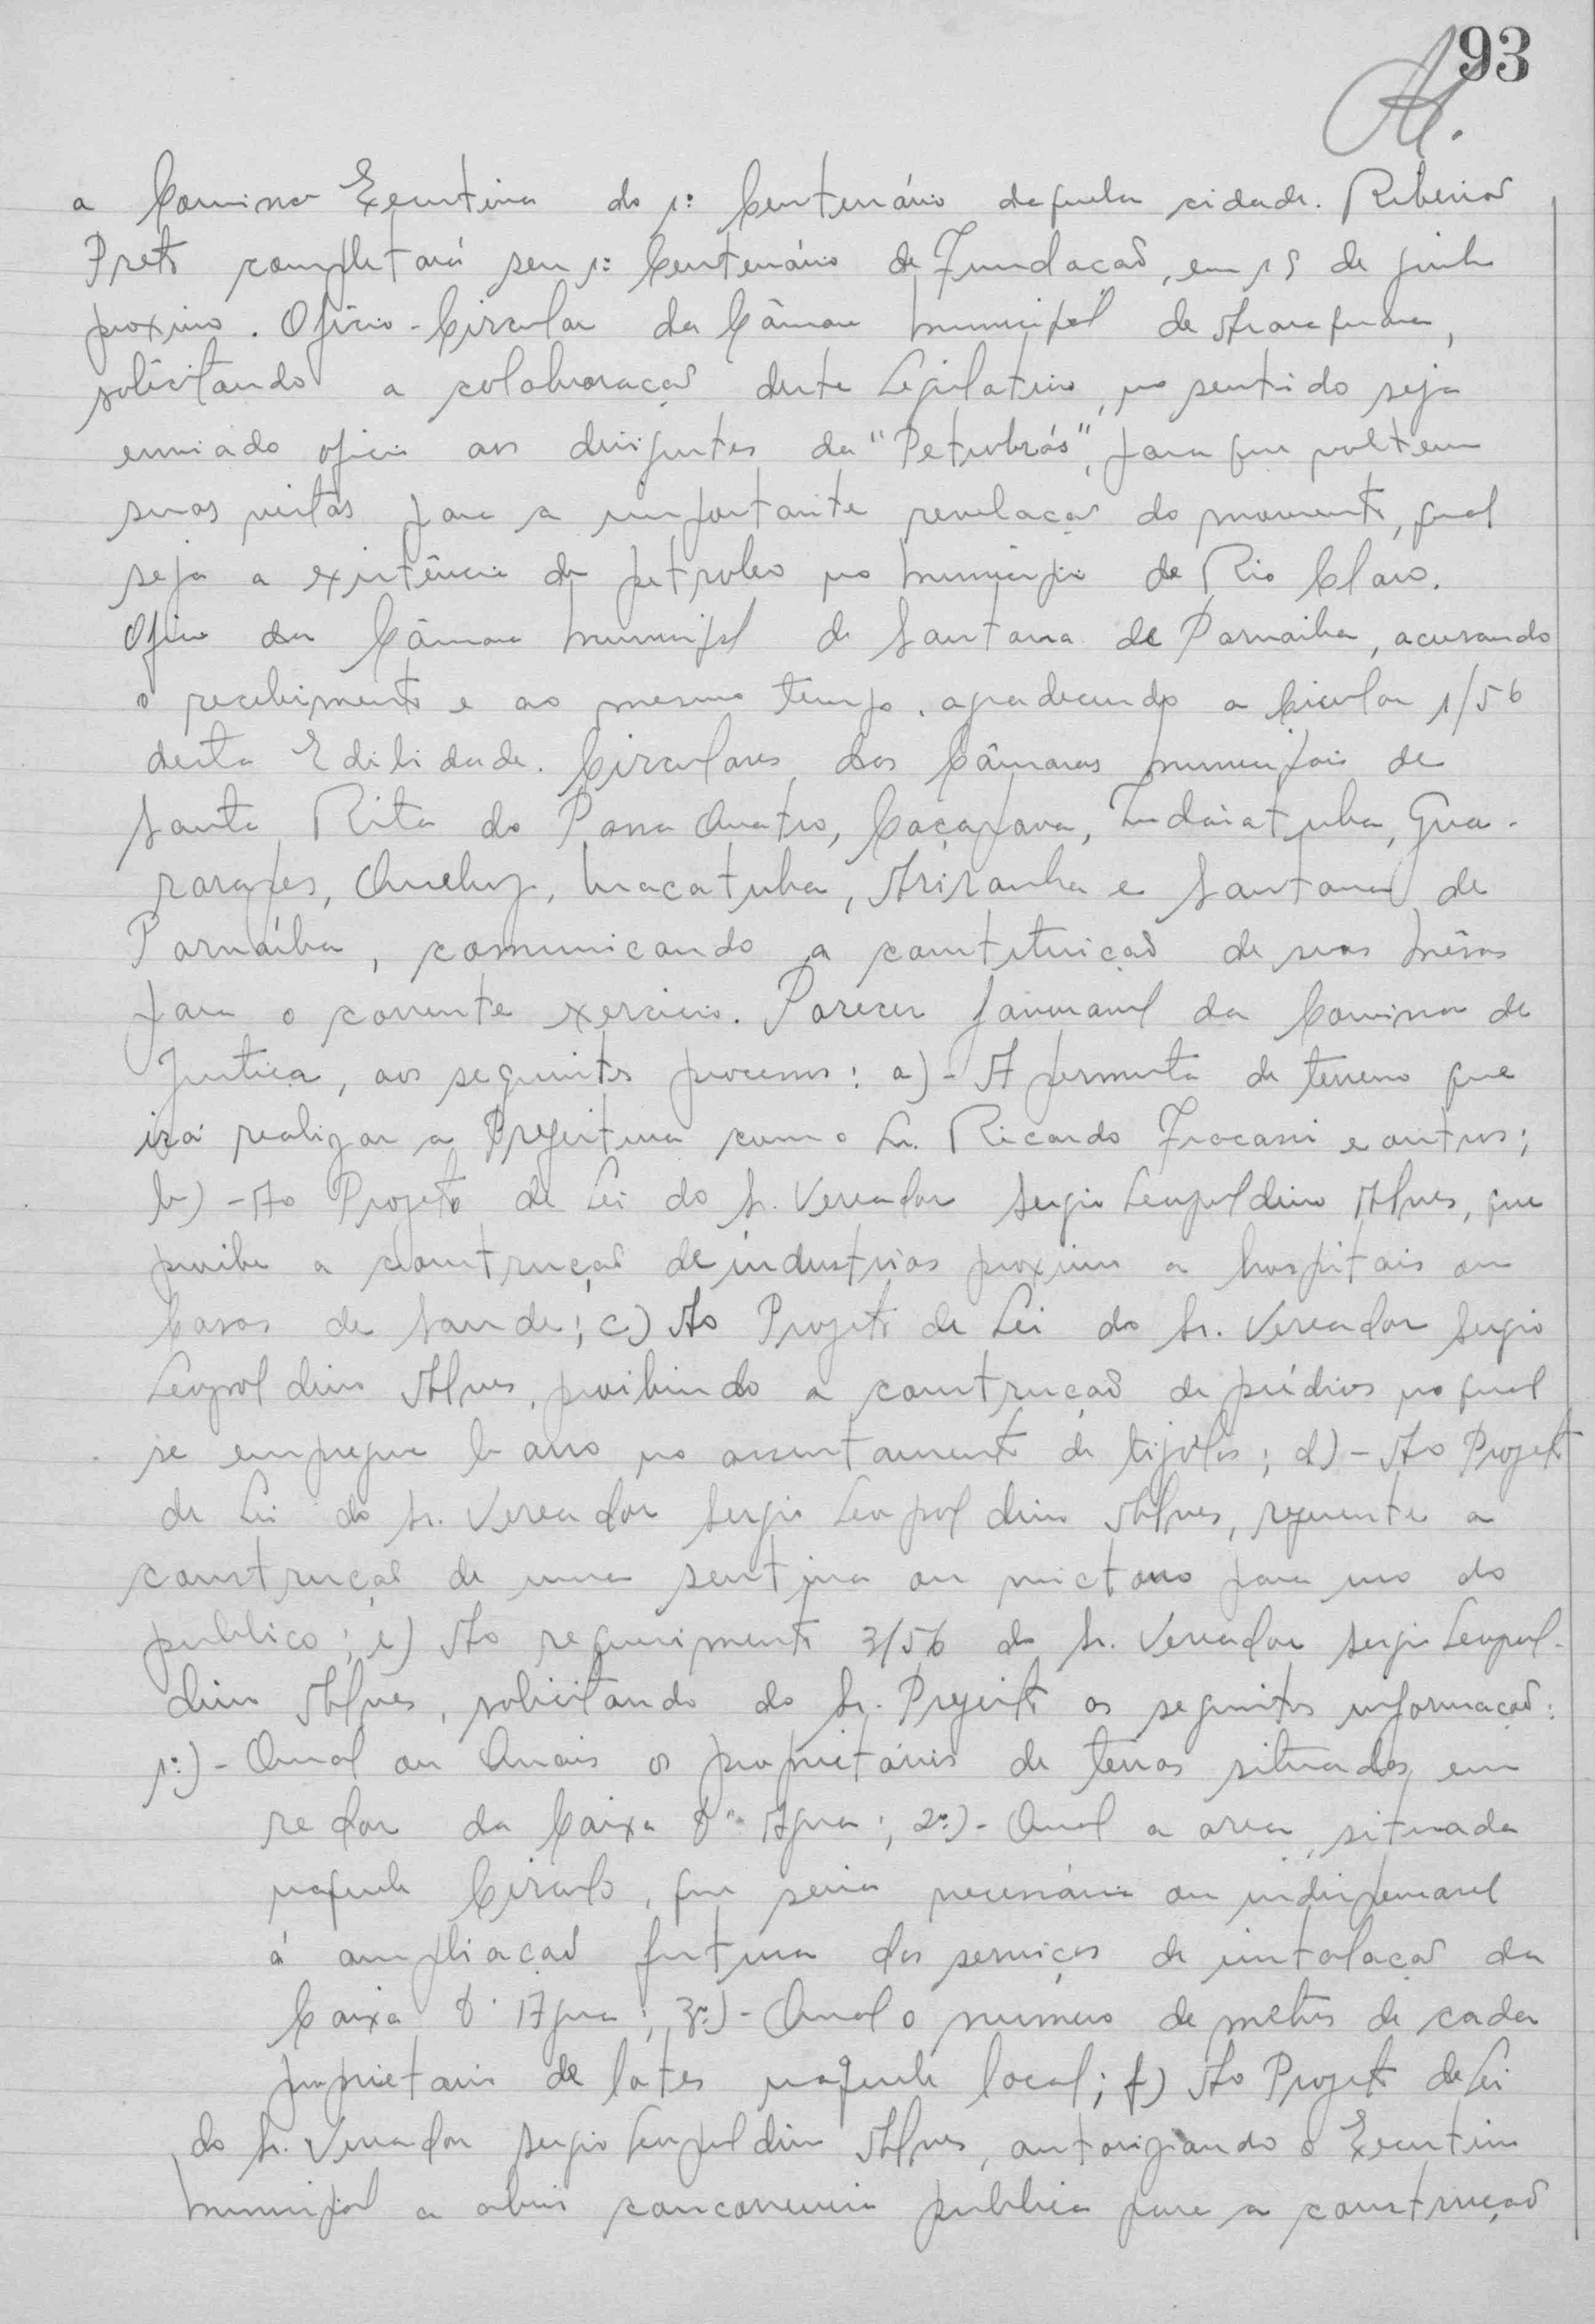 93
a Comissão Executiva do 1º Centenário daquela cidade. Ribeirão
Preto completará seu 1º Centenário de Fundação, em 19 de junho
proximo. Ofício-Circular da Câmara Municipal de Araraquara,
solicitando a colaboração deste Legislativo, no sentido seja
enviado oficio aos dirigentes da "Petrobrás", para que voltem
suas vistas para a importante revelação do momento, qual
seja a existência de petroleo no Municipio de Rio Claro.
Oficio da Câmara Municipal de Santana de Parnaiba, acusando
o recebimento e ao mesmo tempo, agradecendo a Circular 1/56
desta Edilidade. Circulares das Câmaras Municipais de
Santa Rita do Passa Quatro, Caçapava, Indaiatuba, Gua-
rarapes, Queluz, Macatuba, Ariranha e Santana de
Parnaíba, comunicando a constituição de suas Mêsas
para o corrente exercicio. Parecer favoravel da Comissão de
Justiça, aos seguintes processos: a)- A permuta de terreno que
irá realizar a Prefeitura com o Sr. Ricardo Fracassi e outros;
b) - Ao Projeto de Lei do Sr. Vereador Sergio Leopoldino Alves, que
proibe a construção de industrias proximo a hospitais ou
Casas de Saude; c) Ao Projeto de Lei do Sr. Vereador Sergio
Leopoldino Alves, proibindo a construção de prédios no qual
se empregue barro no assentamento de tijolos; d) - Ao Projeto
de Lei do Sr. Vereador Sergio Leopoldino Alves, referente a
construção de uma sentina ou mictorio para uso do
publico; e) Ao requerimento 3/56 do Sr. Vereador Sergio Leopol-
dino Alves, solicitando do Sr. Prefeito as seguintes informação:
1º)- Qual ou Quais os proprietários de terras situadas em
redor da Caixa D'Agua; 2º)- Qual a area, situada
naquele Circulo, que seria necessária ou indispensavel
á ampliação futura dos serviços de instalação da
Caixa D'Agua; 3º)- Qual o numero de metros de cada
proprietario de lotes naquele local; f) Ao Projeto de Lei
do Sr. Vereador Sergio Leopoldino Alves, autorizando o Executivo
Municipal a abrir concorrencia publica para a construção